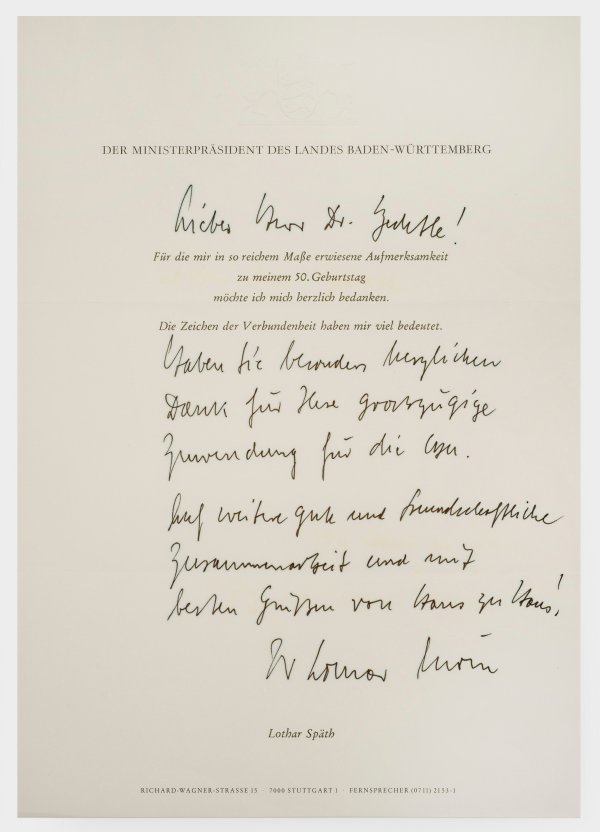 DER MINISTERPRÄSIDENT DES LANDES BADEN-WÜRTTEMBERG
Lieber Herr Dr.
Für die mir in so reichem Maße erwiesene Aufmerksamkeit
zu meinem 50. Geburtstag
möchte ich mich herzlich bedanken.
Die Zeichen der Verbundenheit haben mir viel bedeutet.
Haben Sie besonders herzlichen
Dank für Ihre grosszügige
Zuwendung für die
Auf weitere gute und freundschaftliche
Zusammenarbeit und mit
besten Grüßen von Haus zu Haus!
Ihr Lothar Späth
Lothar Späth
RICHARD-WAGNER-STRASSE 15 · 7000 STUTTGART 1 · FERNSPRECHER (0711) 2153-1